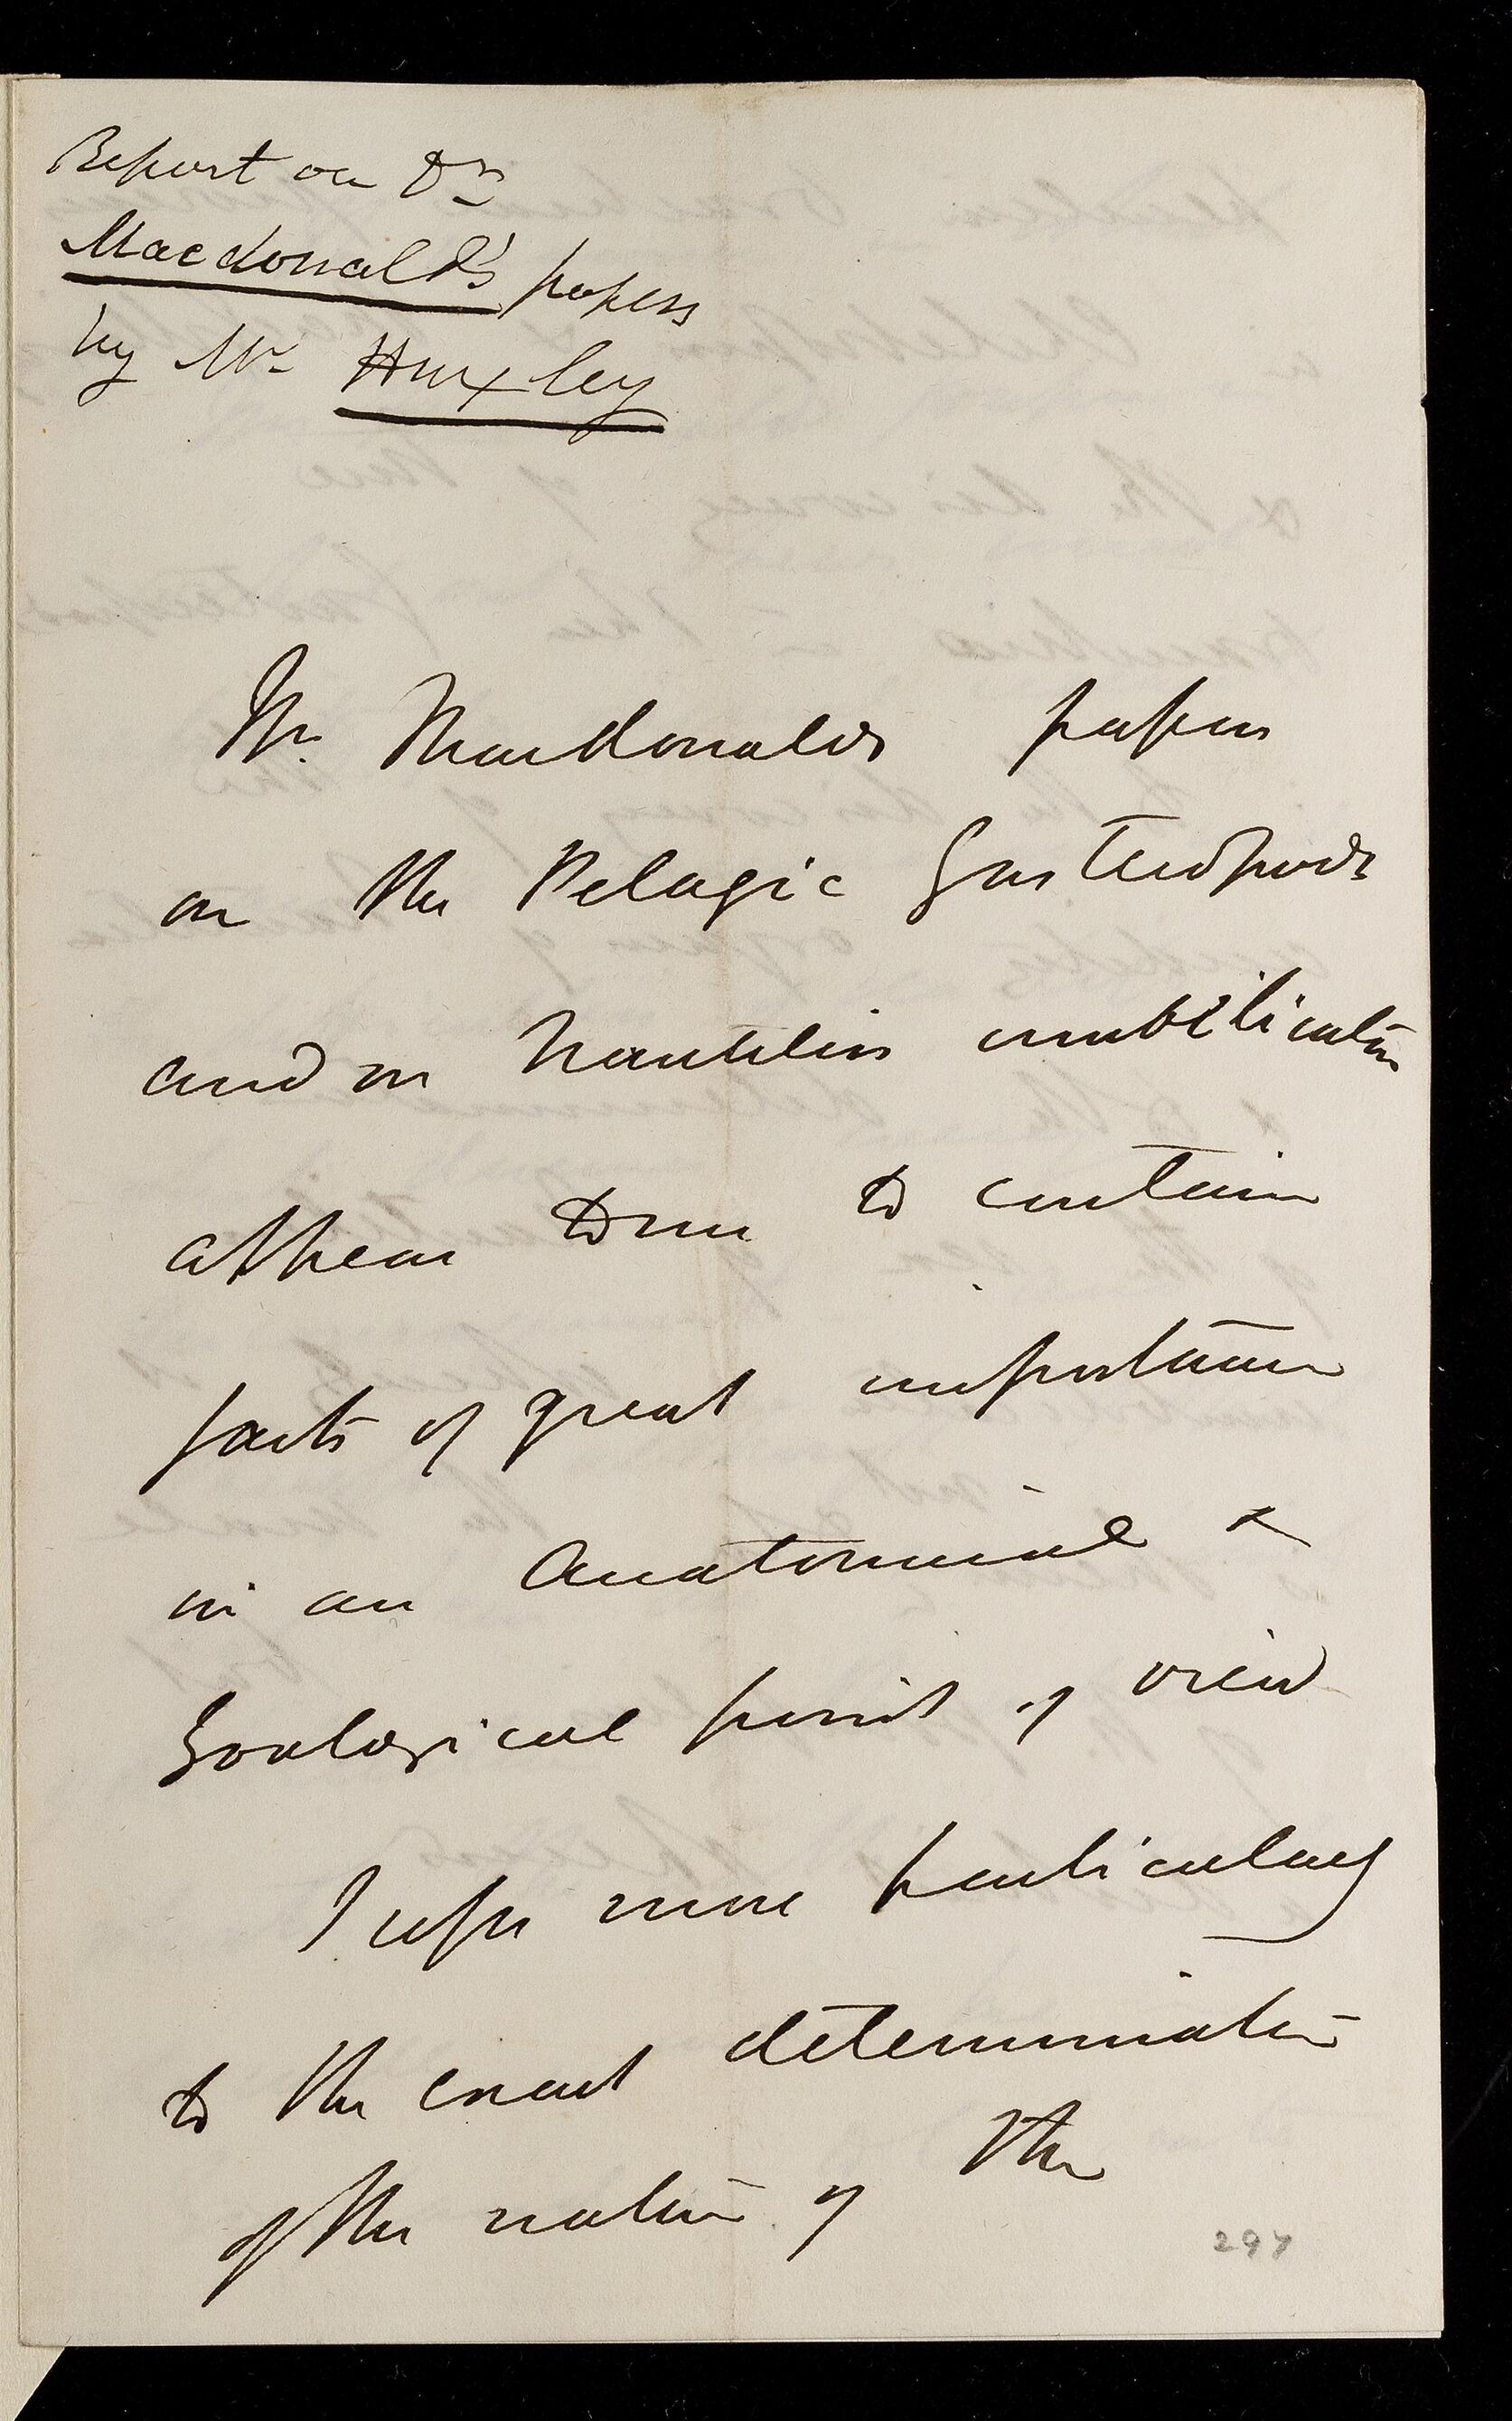 Report on Dr
Macdonald's papers
by Mr Huxley
Mr. Macdonalds papers
on the Pelagic Gasteropods
and on Nautilus umbilicatus
appear to me to contain
facts of great importance
in an anatomical &
Zoological point of view
I refer more particularly
to the exact determination
of the nature of the
297